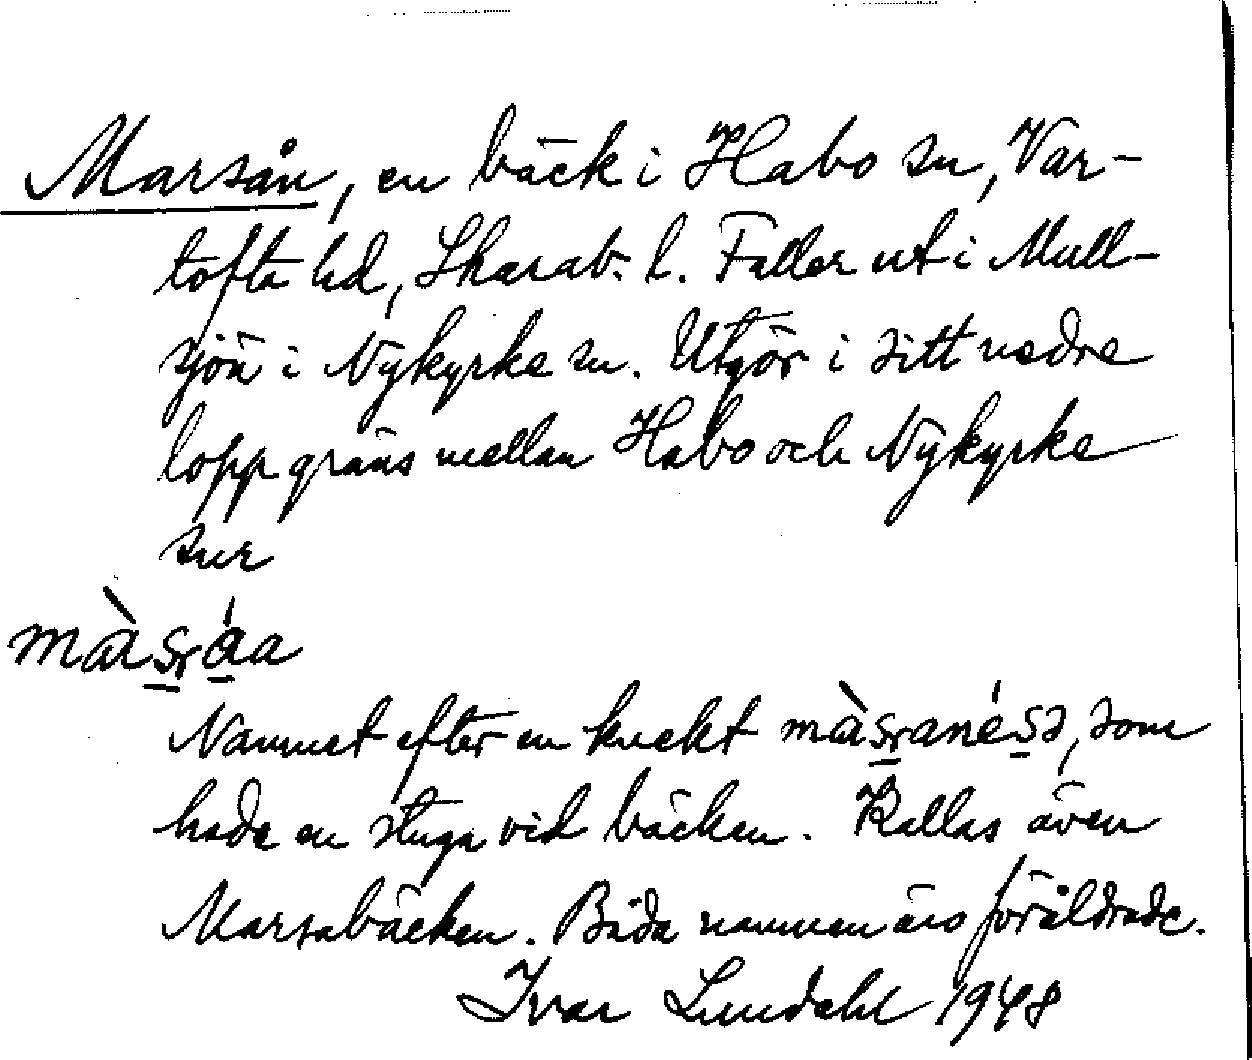 Marsån, en bäck i Habo sn, Var-
tofta hd, Skarab. l. Faller ut i Mull-
sjön i Nykyrke sn. Utgör i sitt nedre
lopp gräns mellan Habo och Nykyrke
snr
Namnet efter en knekt som
hade en stuga vid bäcken. Kallas även
Marsabäcken. Båda namnen äro föråldrade.
Ivar Lundahl 1948